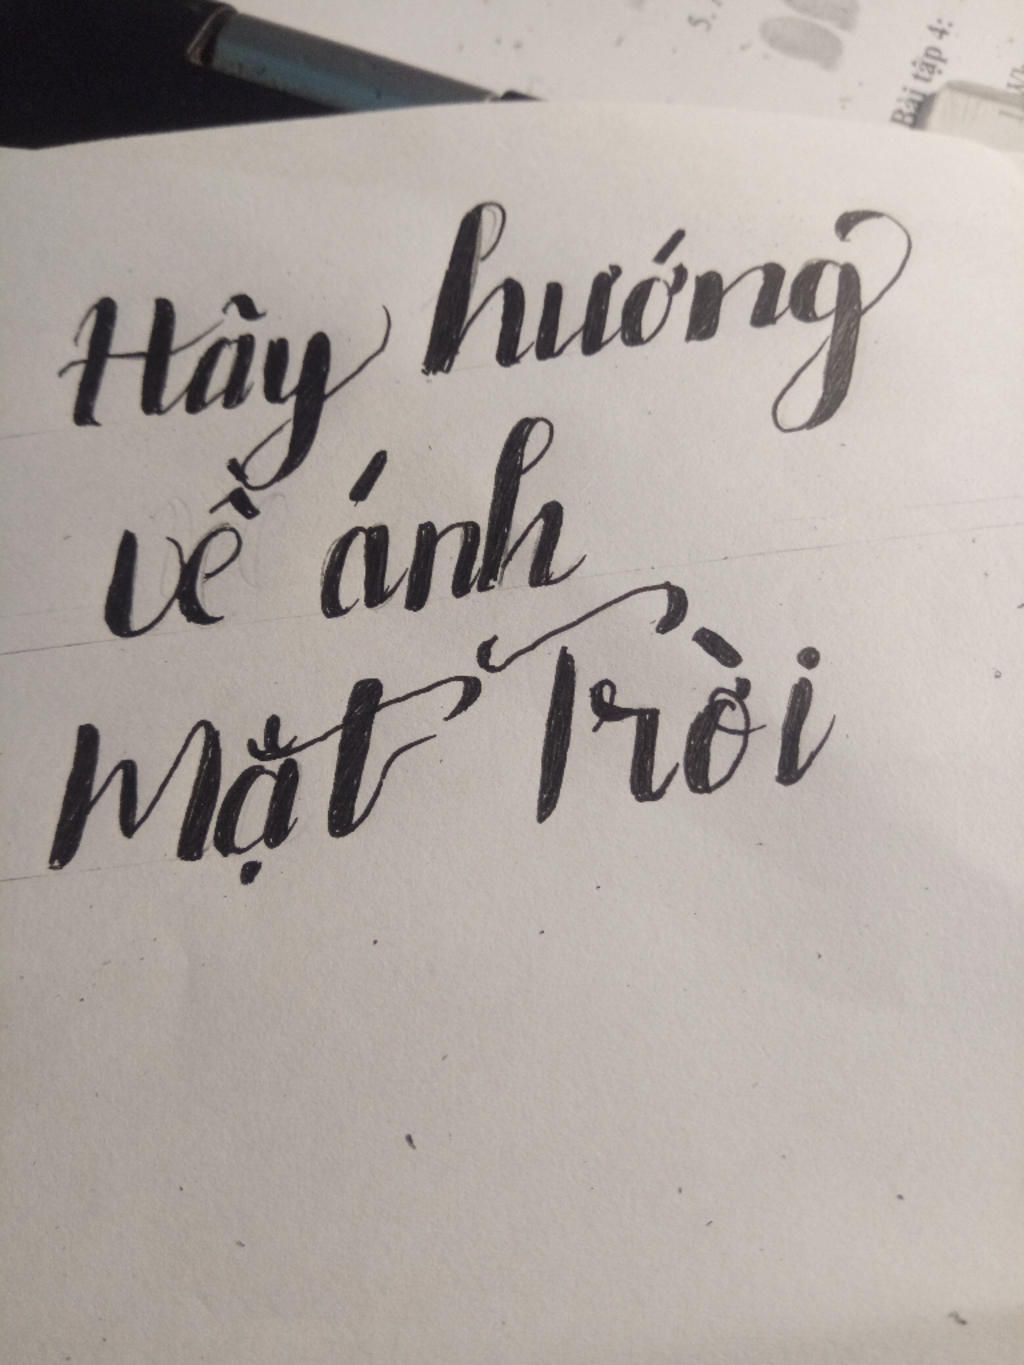 Hãy hướng
về ánh
Mặt Trời
Bài tập 4:
5.